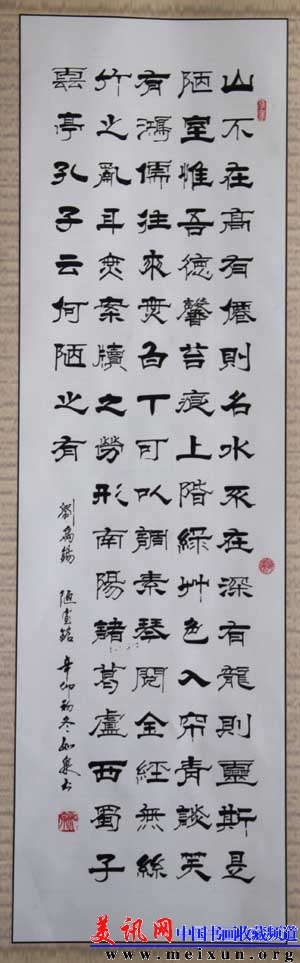 山不在高有僊則名水不在深有龍則靈斯是
陋室惟吾德馨苔痕上階綠艸色入帘青談笑
有鴻儒往來無白丁可以調素琴閱金經無絲
竹之亂耳無案牘之勞形南陽諸葛廬西蜀子
雲亭孔子云何陋之有
劉禹錫 陋室銘 辛卯初冬如泉書
美讯网 中国书画收藏频道
www.meixun.org